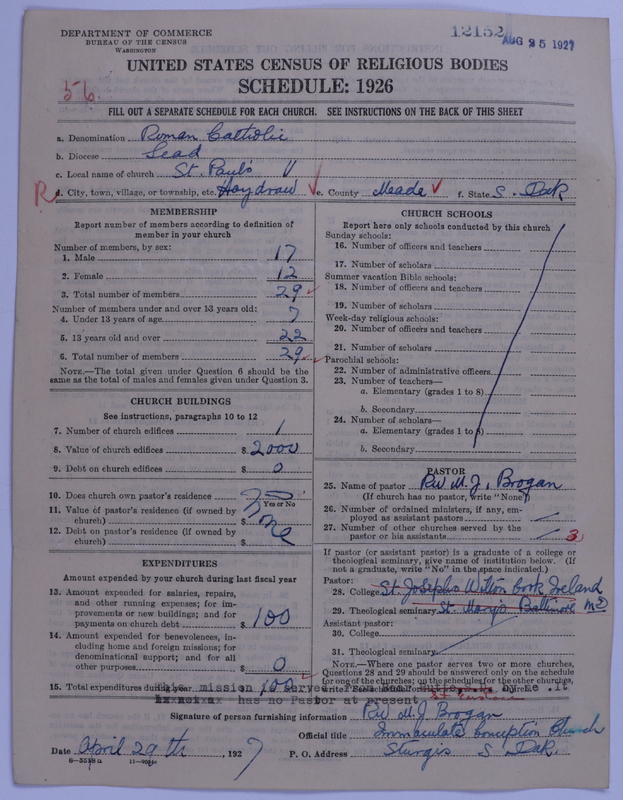 DEPARTMENT OF COMMERCE
BUREAU OF THE CENSUS
WASHINGTON
12152
AUG 25 1927
UNITED STATES CENSUS OF RELIGIOUS BODIES
SCHEDULE: 1926
56
FILL OUT A SEPARATE SCHEDULE FOR EACH CHURCH. SEE INSTRUCTIONS ON THE BACK OF THIS SHEET
a. Denomination Roman Catholic
b. Diocese Lead
c. Local name of church St. Paul's
R d. City, town, village, or township, etc. Haydraw e. County Meade f. State S. Dak
MEMBERSHIP
Report number of members according to definition of member in your church
Number of members, by sex:
1. Male 17
2. Female 12
3. Total number of members 29
Number of members under and over 13 years old:
4. Under 13 years of age 7
5. 13 years old and over 22
6. Total number of members 29
NOTE.—The total given under Question 6 should be the
same as the total of males and females given under Question 3.
CHURCH BUILDINGS
See instructions, paragraphs 10 to 12
7. Number of church edifices 1
8. Value of church edifices $ 2000
9. Debt on church edifices $ 0
10. Does church own pastor's residence
Yes or No
11. Value of pastor's residence (if owned by
church) $
12. Debt on pastor's residence (if owned by
church) $
EXPENDITURES
Amount expended by your church during last fiscal year
13. Amount expended for salaries, repairs,
and other running expenses; for im-
provements or new buildings; and for
payments on church debt $ 100
14. Amount expended for benevolences, in-
cluding home and foreign missions; for
denominational support; and for all
other purposes $ 0
15. Total expenditures during year 100
CHURCH SCHOOLS
Report here only schools conducted by this church
Sunday schools:
16. Number of officers and teachers
17. Number of scholars
Summer vacation Bible schools:
18. Number of officers and teachers
19. Number of scholars
Week-day religious schools:
20. Number of officers and teachers
21. Number of scholars
Parochial schools:
22. Number of administrative officers
23. Number of teachers—
a. Elementary (grades 1 to 8)
b. Secondary
24. Number of scholars—
a. Elementary (grades 1 to 8)
b. Secondary
PASTOR
25. Name of pastor Rev M. J. Brogan
(If church has no pastor, write "None")
26. Number of ordained ministers, if any, em-
ployed as assistant pastors
27. Number of other churches served by the
pastor or his assistants 3
If pastor (or assistant pastor) is a graduate of a college or
theological seminary, give name of institution below. (If
not a graduate, write "No" in the space indicated.)
Pastor:
28. College St Josephs Wilton Cork Ireland
29. Theological seminary St. Mary's Baltimore Md
Assistant pastor:
30. College
31. Theological seminary
NOTE.—Where one pastor serves two or more churches,
Questions 28 and 29 should be answered only on the schedule
for one of the churches; on the schedules for the other churches,
This mission served from by me .it
has no Pastor at present
Signature of person furnishing information Rev M. J. Brogan
Official title Immaculate Conception Church
Date April 29th, 1927 P. O. Address Sturgis S Dak.